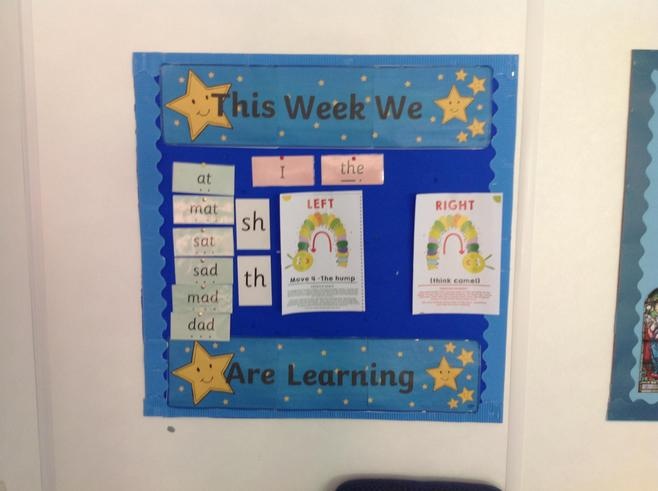 This Week We
at
I
the
mat
sat
sad
mad
dad
sh
th
LEFT
Move 4 -The hump
RIGHT
(think camel)
Are Learning